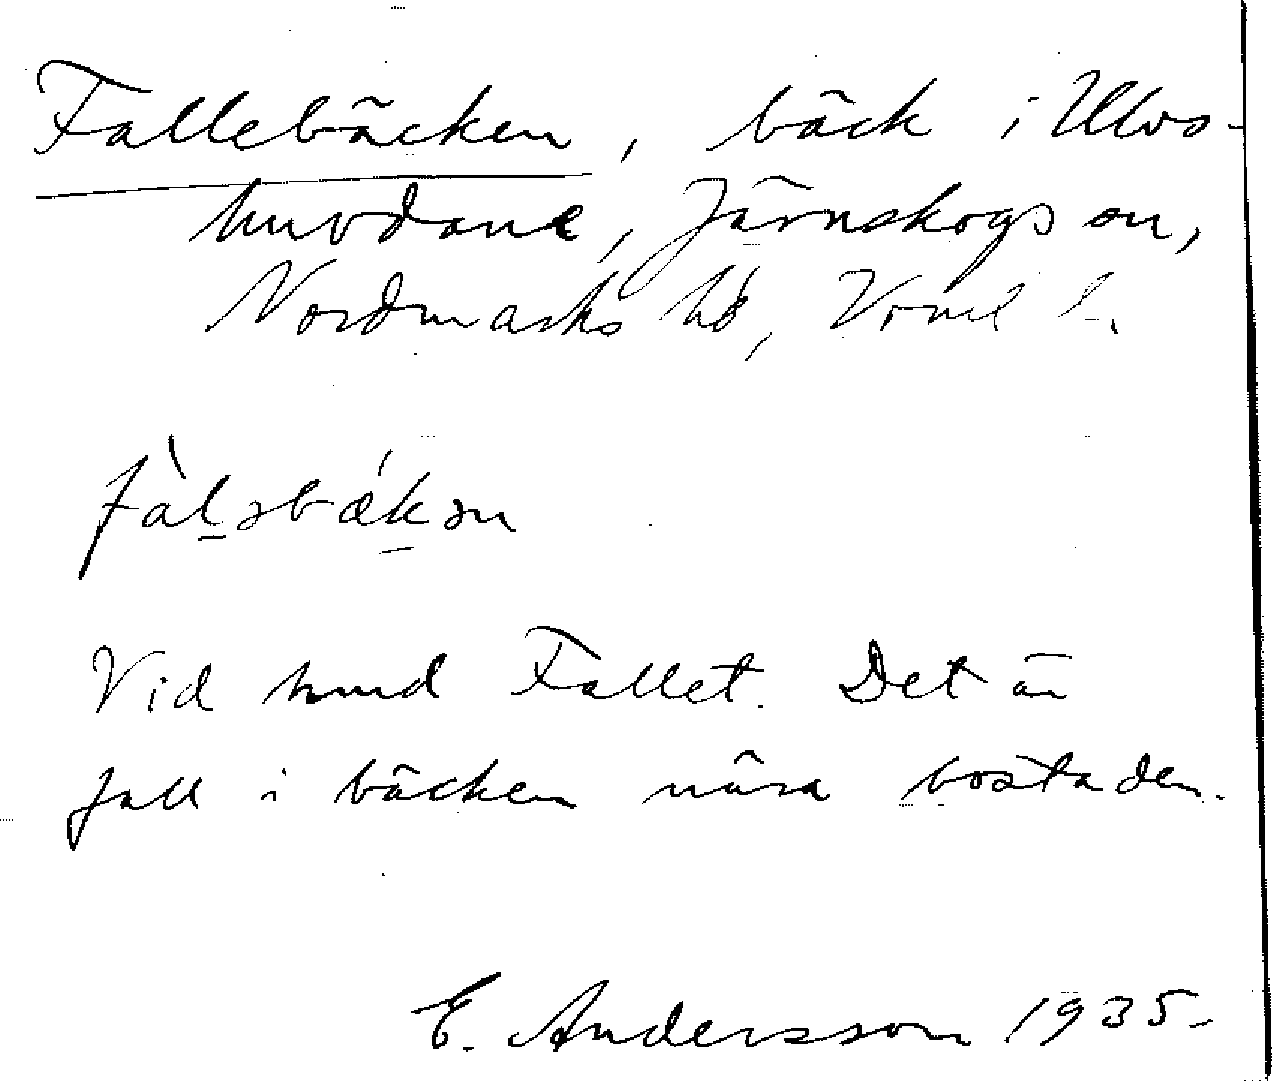 Fallebäcken, bäck i Ulvs-
huvdane, Järnskogs sn,
Nordmarks hd, Vrml l.
fàl̠əbǽk̠ən
Vid hmd Fallet. Det är
fall i bäcken nära bostaden.
E. Andersson 1935.